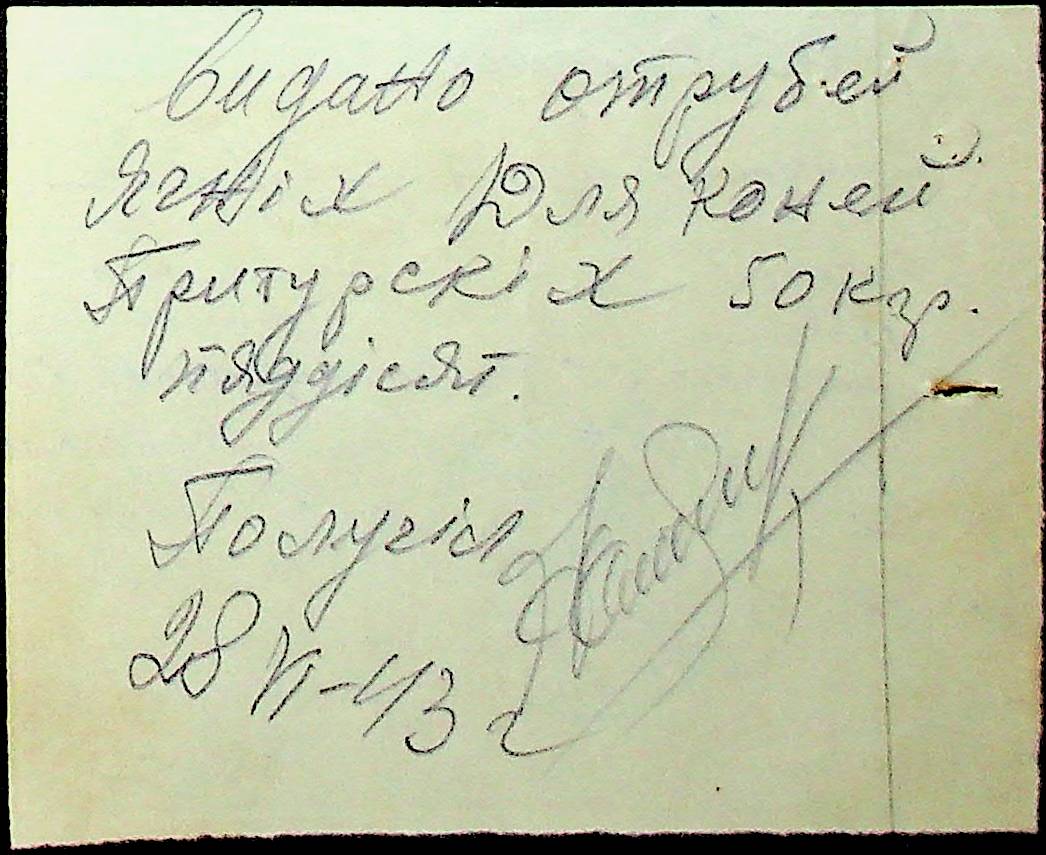 Видано отрубей
ячніх Для коней
Притурскіх 50 кгр.
пяддісят.
Получіл
28 VI-43 г